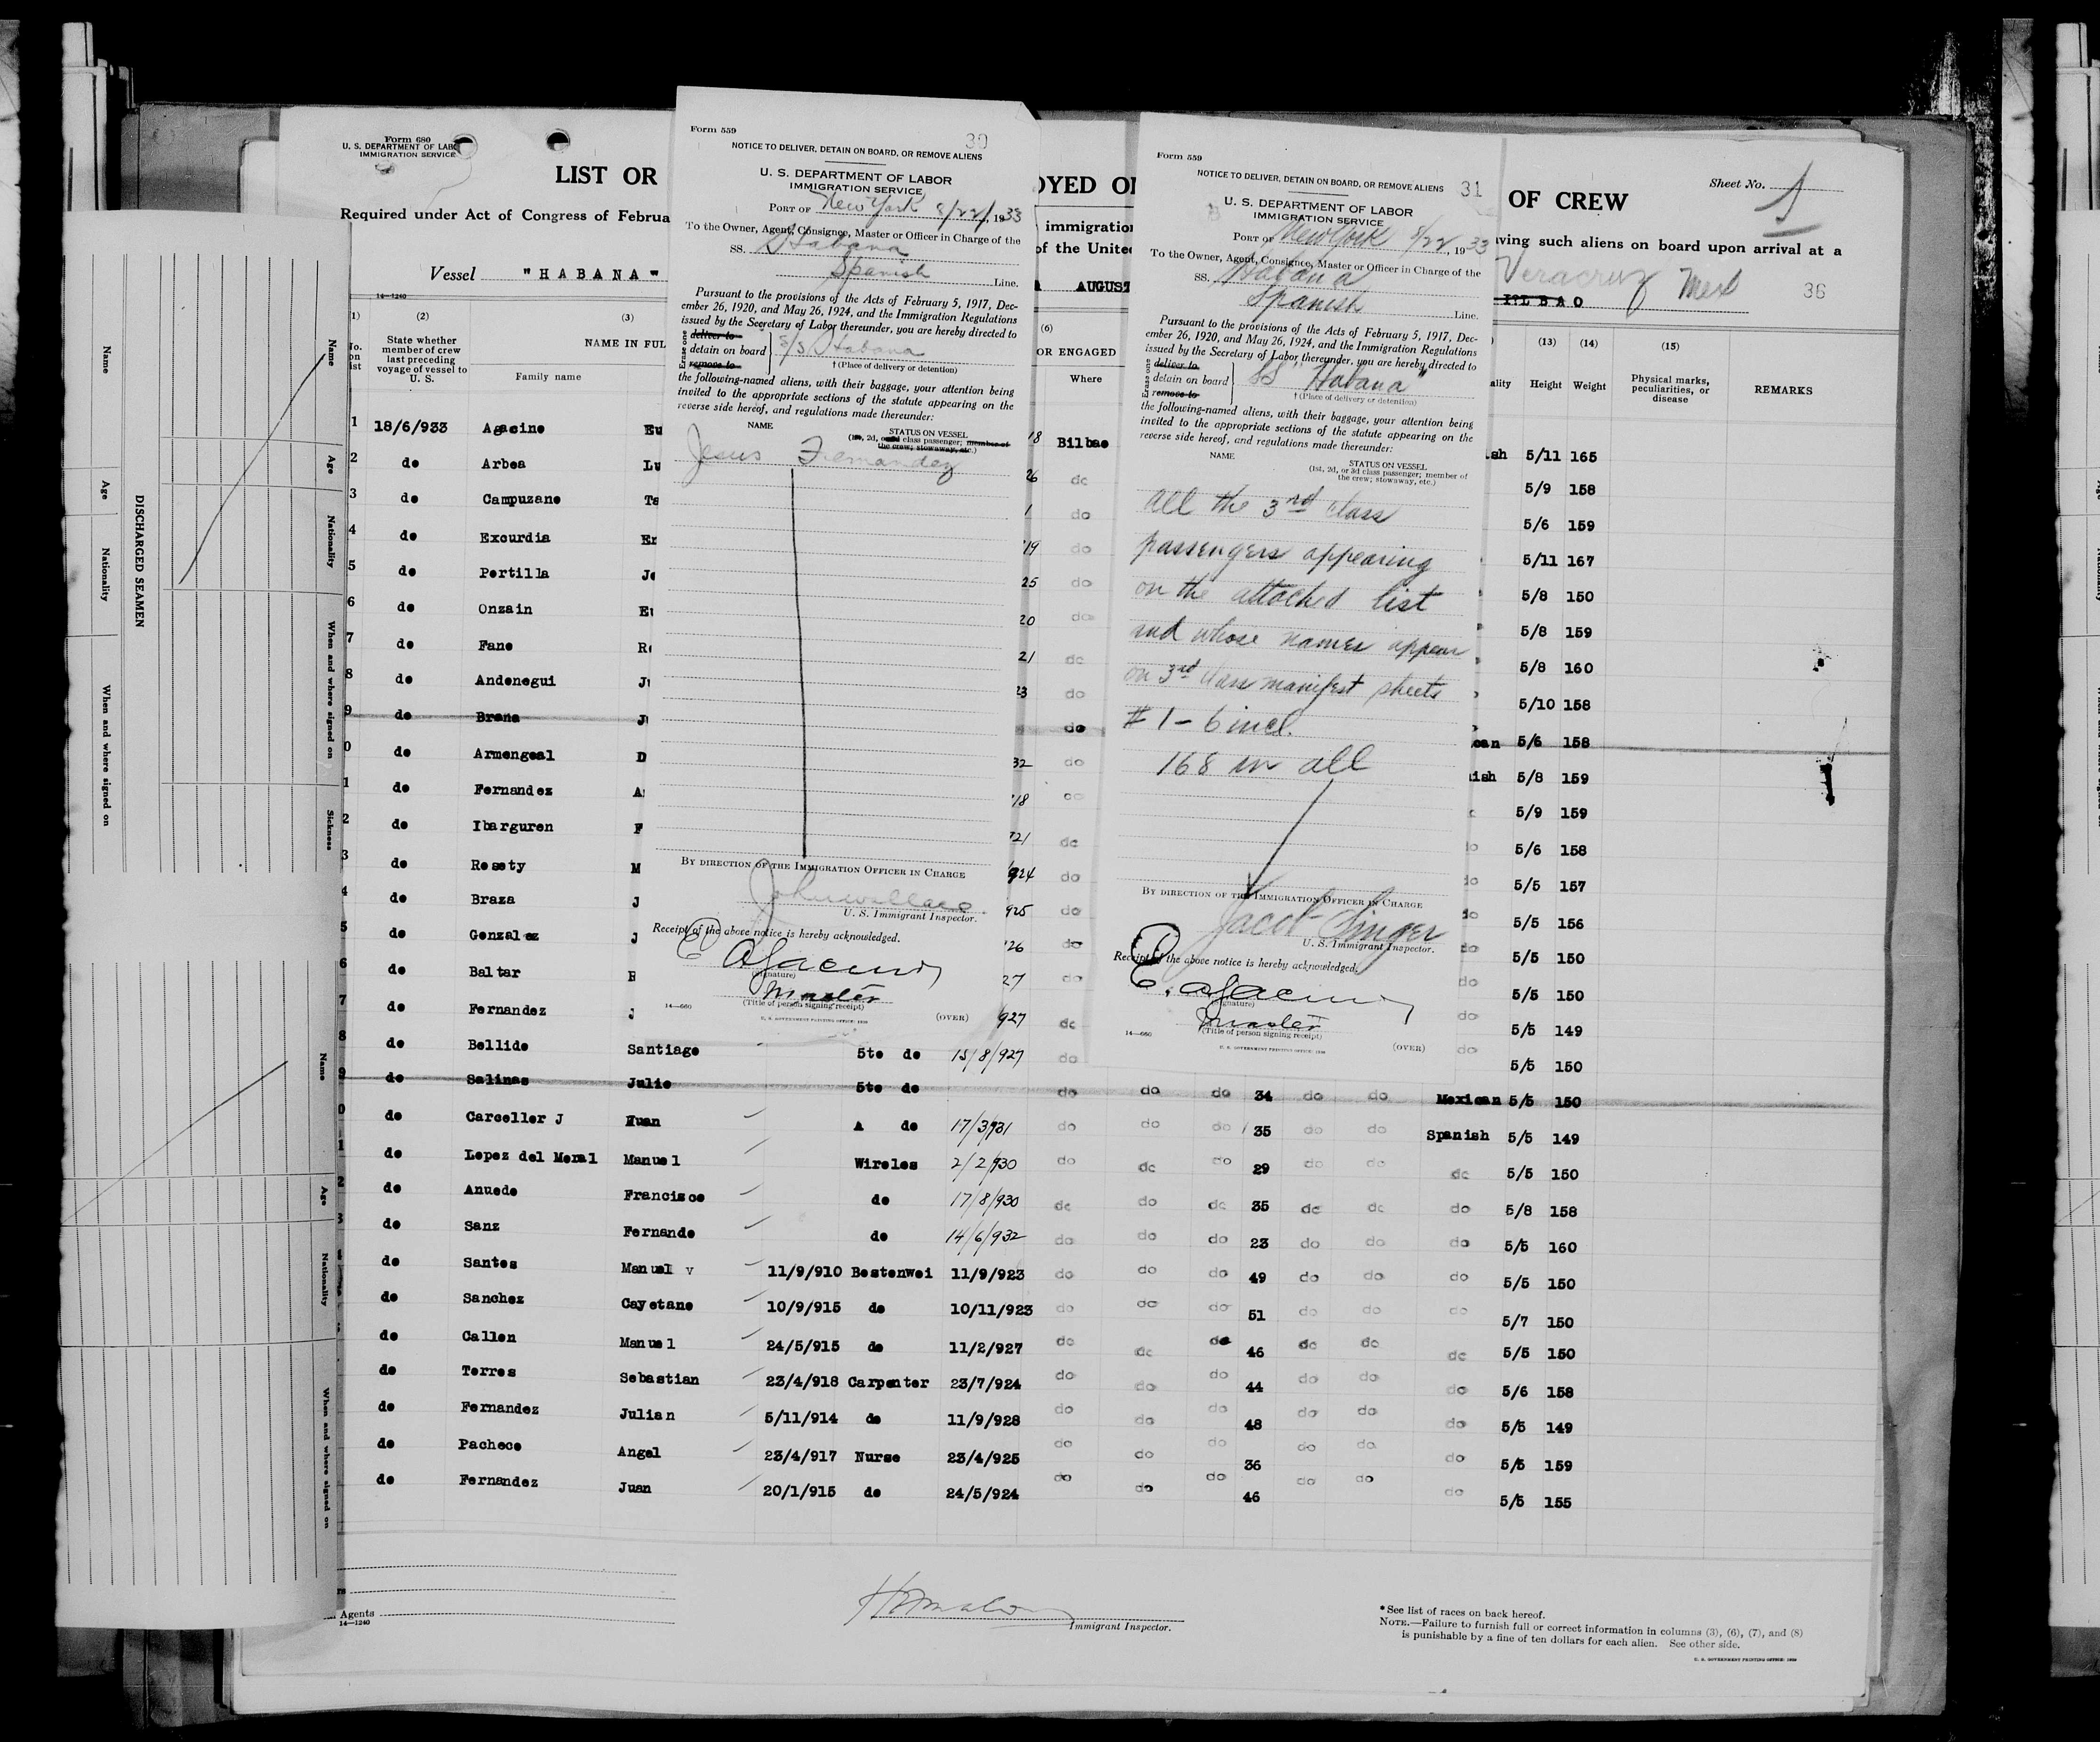 Form 680
U. S. DEPARTMENT OF LABO
IMMIGRATION SERVICE
LIST OR
OYED O
OF CREW
Sheet No. 1
Required under Act of Congress of Februa
immigration
ving such aliens on board upon arrival at a
of the Unite
Vessel "HABANA"
AUGUST
Veracruz Mex
BILBAO
36
14—1240
(2) (3) (6) (13) (14) (15)
State whether member of crew last preceding voyage of vessel to U. S.
NAME IN FUL
Family name
OR ENGAGED
Where
Height Weight
Physical marks, peculiarities, or disease
REMARKS
1 18/6/933 Agacino Eu 18 Bilbao sh 5/11 165
2 do Arbea Lu 26 do 5/9 158
3 do Campuzano 1 do 5/6 159
4 do Excurdia 19 do 5/11 167
5 do Portilla 25 do 5/8 150
6 do Onzain 20 do 5/8 159
7 do Fano 21 do 5/8 160
8 do Andonegui 23 do 5/10 158
9 do Brana do can 5/6 158
0 do Armengoal D 32 do ish 5/8 159
1 do Fernandez 18 do 5/9 159
2 do Ibarguren F 21 do 5/6 158
3 do Rosety M 924 do 5/5 157
4 do Braza J 925 do 5/5 156
5 do Gonzalez J 26 do 5/5 150
6 do Baltar 27 do 5/5 150
7 do Fernandez 927 do 5/5 149
8 do Bellido Santiago 5to do 15/8/927 do 5/5 150
9 do Salinas Julio 5to do do do do 34 do do Mexican 5/5 150
0 do Carceller J Juan A do 17/3/931 do do do 35 do do Spanish 5/5 149
1 do Lopez del Moral Manuel Wireles 2/2/930 do do do 29 do do do 5/5 150
2 do Anuedo Francisco do 17/8/930 do do do 35 do do do 5/8 158
3 do Sanz Fernando do 14/6/932 do do do 23 do do do 5/5 160
do Santos Manuel v 11/9/910 Bostonwei 11/9/923 do do do 49 do do do 5/5 150
do Sanchez Cayetano 10/9/915 do 10/11/923 do do do 51 do do do 5/7 150
do Callon Manuel 24/5/915 do 11/2/927 do do do 46 do do do 5/5 150
do Torres Sebastian 23/4/918 Carpenter 23/7/924 do do do 44 do do do 5/6 158
do Fernandez Julian 5/11/914 do 11/9/928 do do do 48 do do do 5/5 149
do Pacheco Angel 23/4/917 Nurse 23/4/925 do do do 36 do do do 5/5 159
do Fernandez Juan 20/1/915 do 24/5/924 do do do 46 do do do 5/5 155
Agents
14—1240
Immigrant Inspector.
*See list of races on back hereof.
NOTE.—Failure to furnish full or correct information in columns (3), (6), (7), and (8)
is punishable by a fine of ten dollars for each alien. See other side.
U. S. GOVERNMENT PRINTING OFFICE: 1929
Form 559
30
NOTICE TO DELIVER, DETAIN ON BOARD, OR REMOVE ALIENS
U. S. DEPARTMENT OF LABOR
IMMIGRATION SERVICE
PORT OF New York 8/22/, 1933
To the Owner, Agent, Consignee, Master or Officer in Charge of the
SS. Habana
Spanish Line.
Pursuant to the provisions of the Acts of February 5, 1917, Dec-
ember 26, 1920, and May 26, 1924, and the Immigration Regulations
issued by the Secretary of Labor thereunder, you are hereby directed to
Erase one
deliver to
detain on board S/S Habana
remove to †(Place of delivery or detention)
the following-named aliens, with their baggage, your attention being
invited to the appropriate sections of the statute appearing on the
reverse side hereof, and regulations made thereunder:
NAME STATUS ON VESSEL
(1st, 2d, or 3d class passenger; member of
the crew; stowaway, etc.)
Jesus Fernandez
BY DIRECTION OF THE IMMIGRATION OFFICER IN CHARGE
John Wallace
U. S. Immigrant Inspector.
Receipt of the above notice is hereby acknowledged.
E Agacino
(Signature)
Master
(Title of person signing receipt)
14—660
U. S. GOVERNMENT PRINTING OFFICE: 1929
(OVER)
Form 559
31
NOTICE TO DELIVER, DETAIN ON BOARD, OR REMOVE ALIENS
U. S. DEPARTMENT OF LABOR
IMMIGRATION SERVICE
PORT OF New York 8/22, 1933
To the Owner, Agent, Consignee, Master or Officer in Charge of the
SS. Habana
Spanish Line.
Pursuant to the provisions of the Acts of February 5, 1917, Dec-
ember 26, 1920, and May 26, 1924, and the Immigration Regulations
issued by the Secretary of Labor thereunder, you are hereby directed to
Erase one
deliver to
detain on board SS "Habana"
remove to †(Place of delivery or detention)
the following-named aliens, with their baggage, your attention being
invited to the appropriate sections of the statute appearing on the
reverse side hereof, and regulations made thereunder:
NAME STATUS ON VESSEL
(1st, 2d, or 3d class passenger; member of
the crew; stowaway, etc.)
All the 3rd class
passengers appearing
on the attached list
and whose names appear
on 3rd class manifest sheets
# 1 - 6 incl.
168 in all
BY DIRECTION OF THE IMMIGRATION OFFICER IN CHARGE
Jacob Singer
U. S. Immigrant Inspector.
Receipt of the above notice is hereby acknowledged.
E. Agacino
(Signature)
Master
(Title of person signing receipt)
14—660
U. S. GOVERNMENT PRINTING OFFICE: 1929
(OVER)
DISCHARGED SEAMEN
Name
Age
Nationality
When and where signed on
Name
Age
Nationality
When and where signed on
Sickness
Name
Age
Nationality
When and where signed on